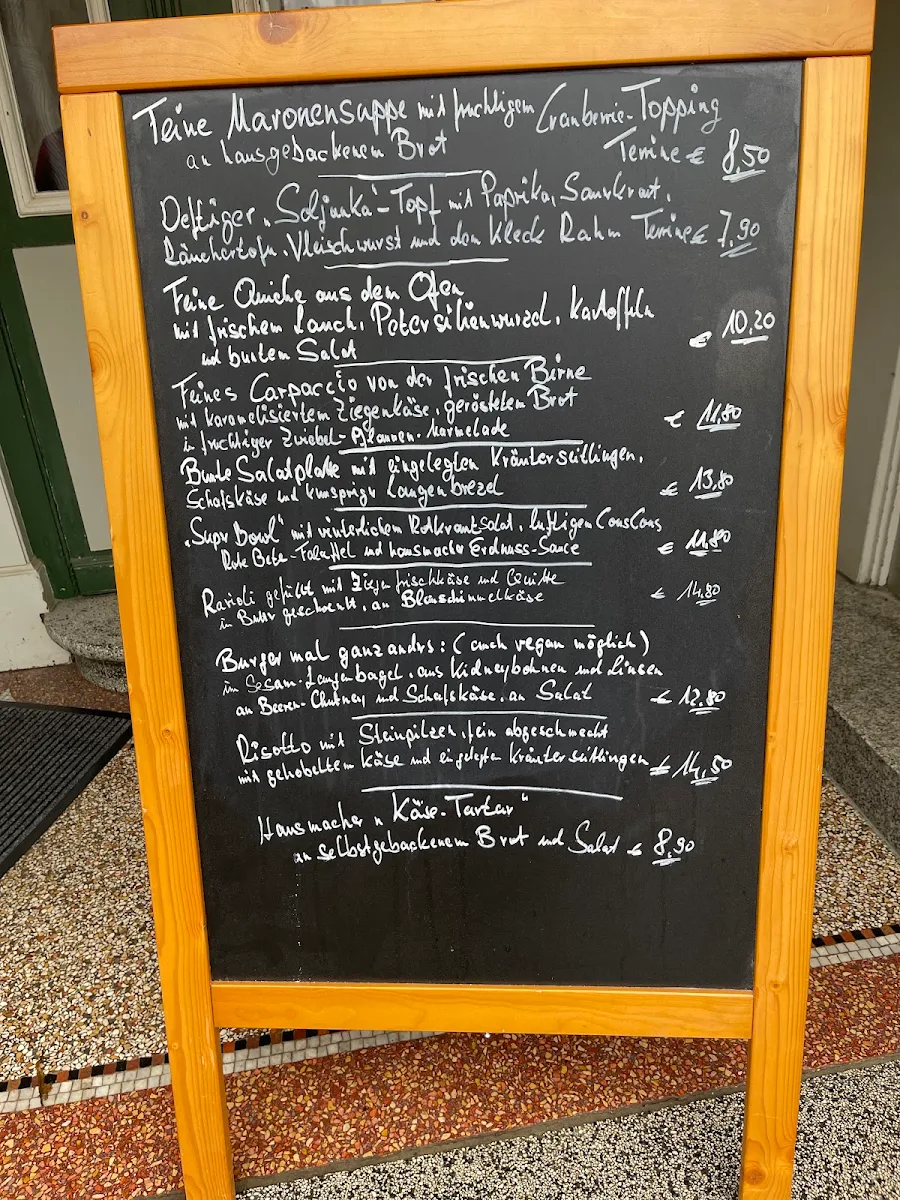 Feine Maronensuppe mit fruchtigem Cranberrie-Topping
an hausgebackenem Brot Terrine € 8,50
Deftiger „Soljanka"-Topf mit Paprika, Sauerkraut,
Räuchertofu, Vleischwurst und dem Kleck Rahm Terrine € 7,90
Feine Quiche aus dem Ofen
mit frischem Lauch, Petersilienwurzel, Kartoffeln
und buntem Salat € 10,20
Feines Carpaccio von der frischen Birne
mit karamelisiertem Ziegenkäse, geröstetem Brot € 11,80
in fruchtiger Zwiebel-Pflaumen-Marmelade
Bunte Salatplatte mit eingelegten Kräuterseitlingen,
Schafskäse und knuspriger Laugenbrezel € 13,80
„Supr Bowl" mit winterlichem Rotkrautsalat, luftigen CousCous
Rote Bete-Falaffel und hausmacher Erdnuss-Sauce € 11,80
Ravioli gefüllt mit Ziegenfrischkäse und Quitte
in Butter geschwenkt, an Blauschimmelkäse € 14,80
Burger mal ganz anders: (auch vegan möglich)
im Sesam-Laugenbagel, aus Kidneybohnen und Linsen
an Beeren-Chutney und Schafskäse, an Salat € 12,80
Risotto mit Steinpilzen, fein abgeschmeckt
mit gehobeltem Käse und eingelegten Kräuterseitlingen € 14,50
Hausmacher „Käse-Tartar"
an selbstgebackenem Brot und Salat € 8,90